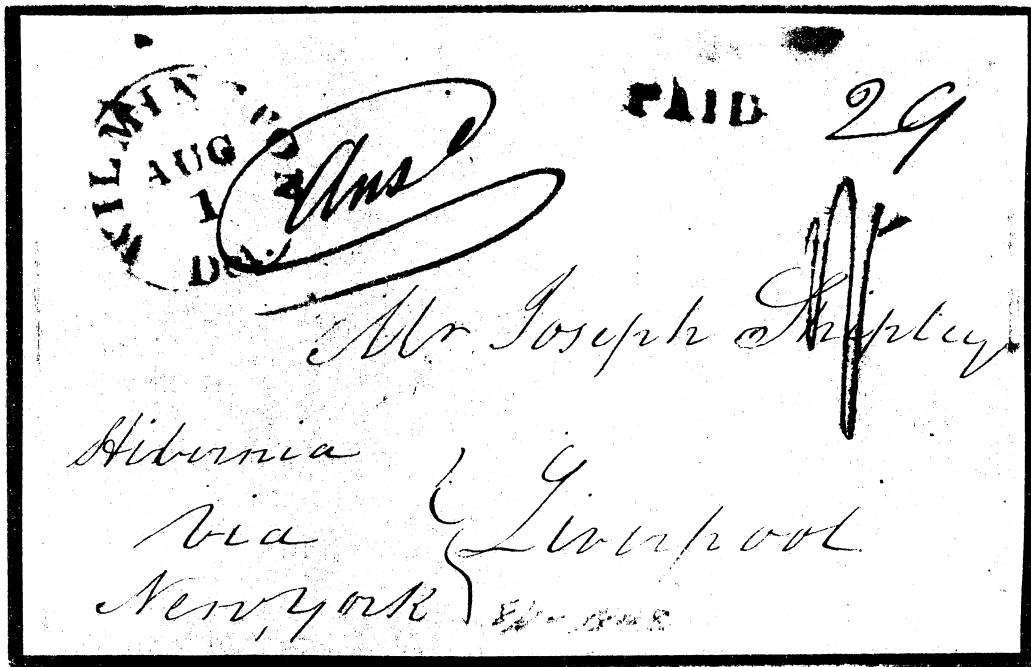 WILMINGTON
AUG
1
Del.
Ans
PAID 29
Mr Joseph Shipley
Hibernia
via
New York
Liverpool